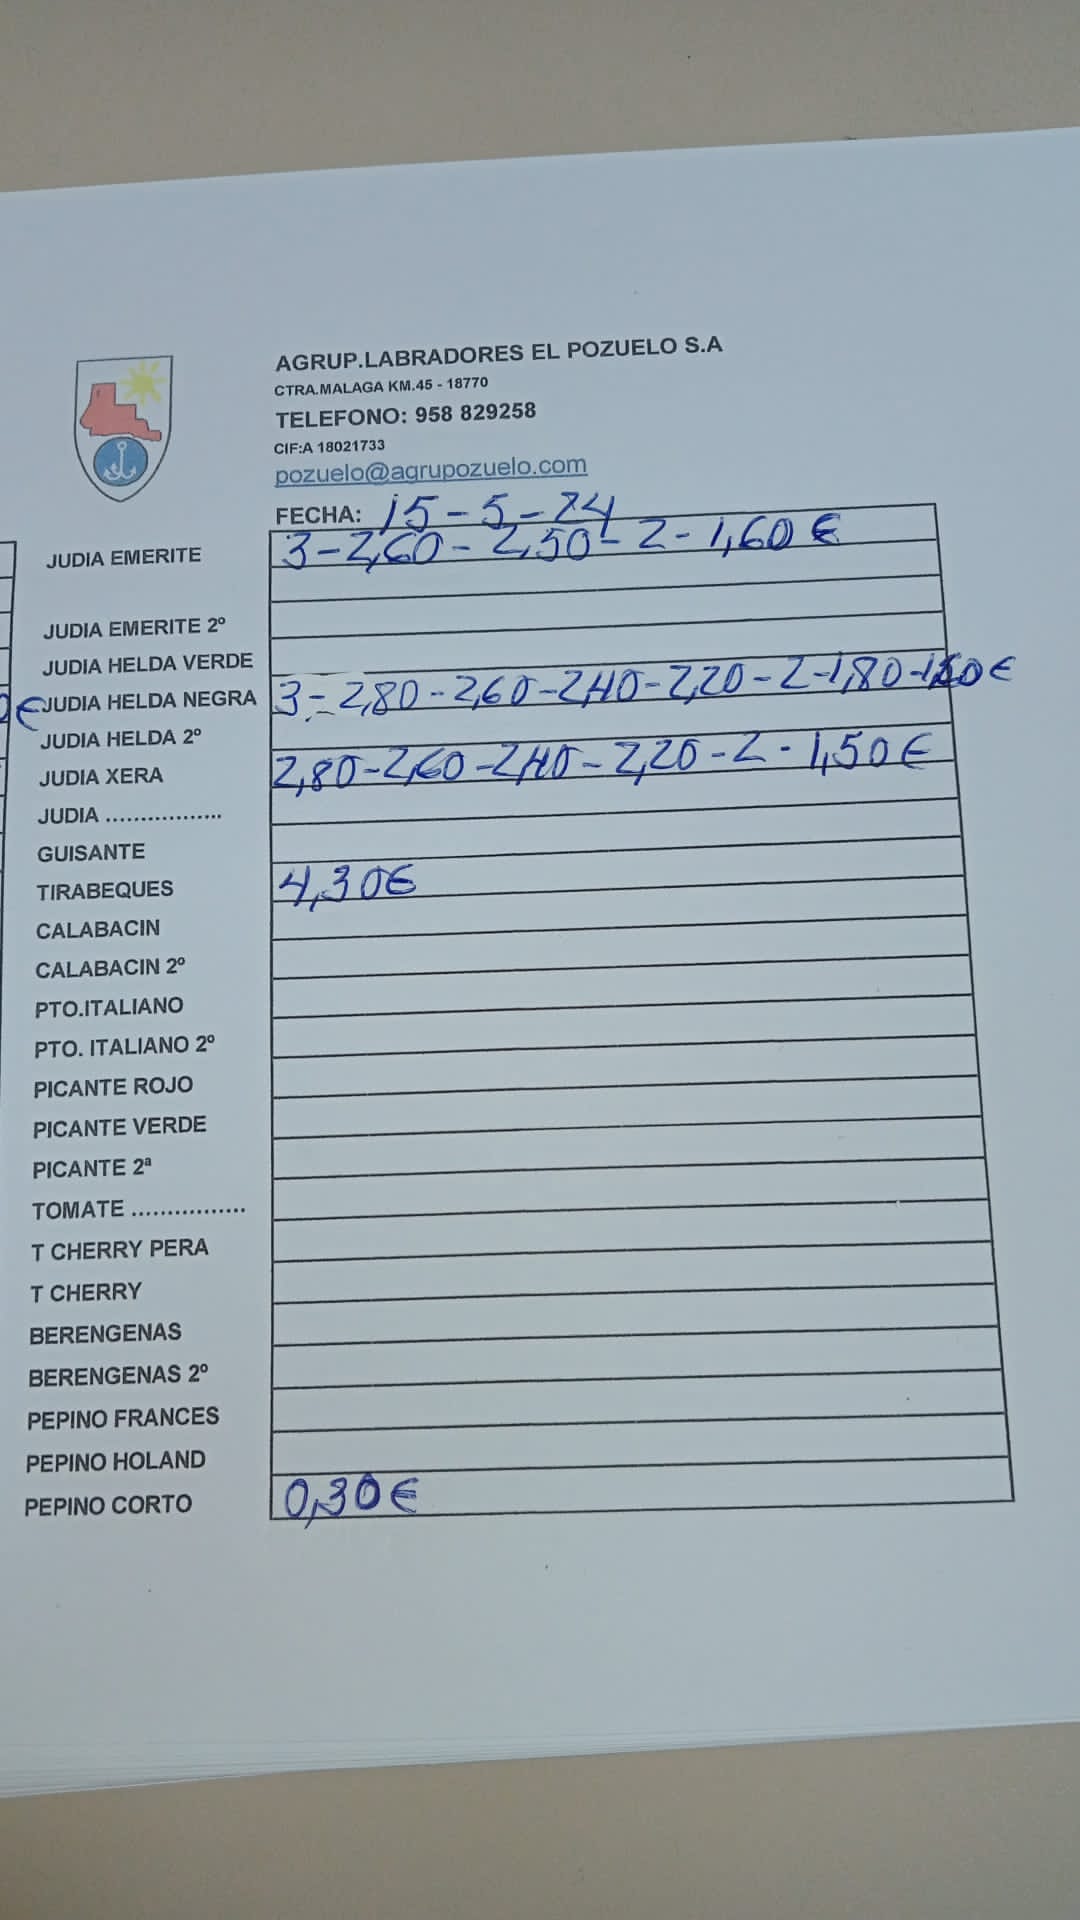 AGRUP.LABRADORES EL POZUELO S.A
CTRA.MALAGA KM.45 - 18770
TELEFONO: 958 829258
CIF:A 18021733
pozuelo@agrupozuelo.com
FECHA: 15-5-24
JUDIA EMERITE 3-2,60-2,50-2-1,60€
JUDIA EMERITE 2º
JUDIA HELDA VERDE
€ JUDIA HELDA NEGRA 3-2,80-2,60-2,40-2,20-2-1,80-
JUDIA HELDA 2º
JUDIA XERA 2,80-2,60-2,40-2,20-2-1,50€
JUDIA .................
GUISANTE
TIRABEQUES 4,30€
CALABACIN
CALABACIN 2º
PTO.ITALIANO
PTO. ITALIANO 2º
PICANTE ROJO
PICANTE VERDE
PICANTE 2ª
TOMATE ................
T CHERRY PERA
T CHERRY
BERENGENAS
BERENGENAS 2º
PEPINO FRANCES
PEPINO HOLAND
PEPINO CORTO 0,30€